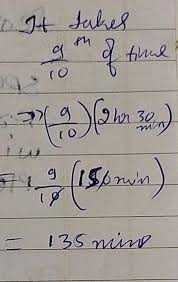 It takes
9/10 th of time
⇒ (9/10) (2 hr 30 min)
= 9/10 (150 min)
= 135 mins